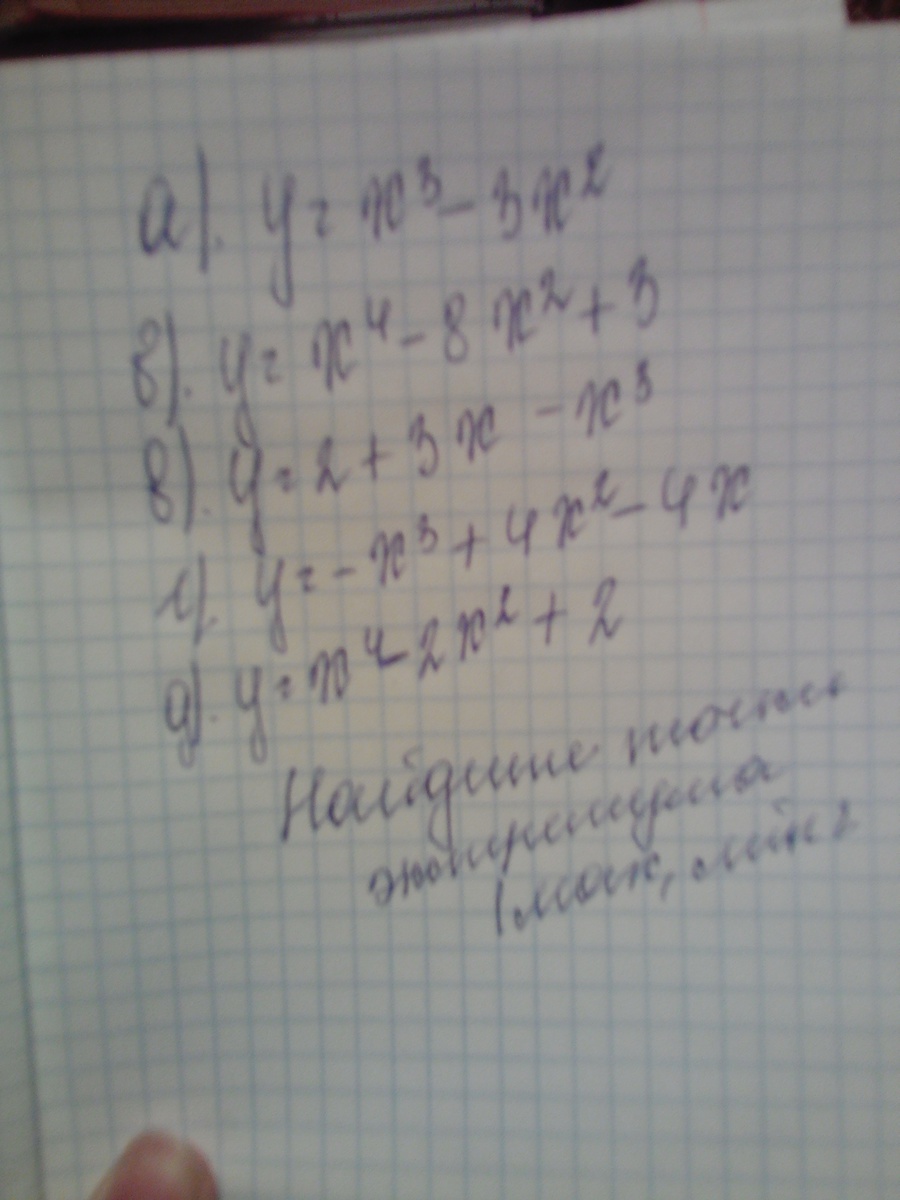 а). y = x³ - 3x²
в). y = x⁴ - 8x² + 3
в). y = 2 + 3x - x³
г). y = -x³ + 4x² - 4x
д). y = x⁴ - 2x² + 2
Найдите точки
экстремума
(мак, мин